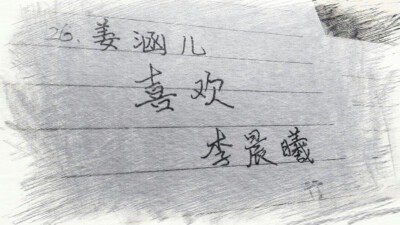 26.姜涵儿
喜欢
李晨曦